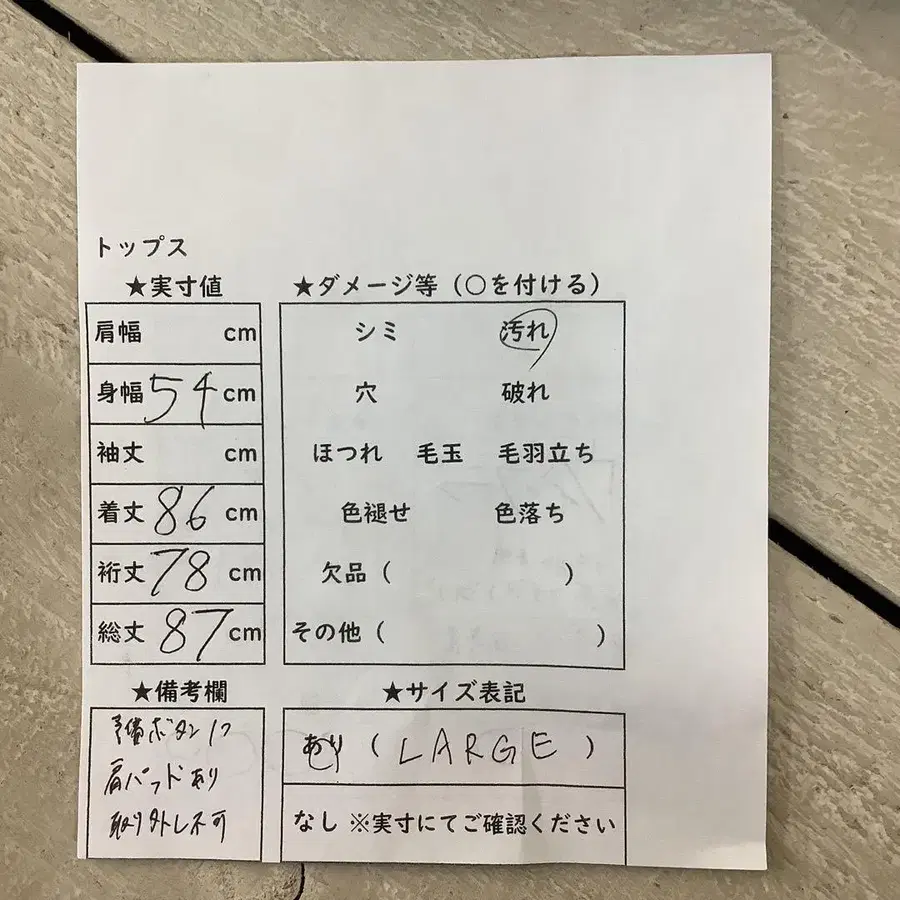 トップス
★実寸値
肩幅 cm
身幅 54 cm
袖丈 cm
着丈 86 cm
裄丈 78 cm
総丈 87 cm
★ダメージ等（○を付ける）
シミ 汚れ
穴 破れ
ほつれ 毛玉 毛羽立ち
色褪せ 色落ち
欠品（ ）
その他（ ）
★備考欄
予備ボタン1つ
肩パッドあり
取り外し不可
★サイズ表記
あり（LARGE）
なし ※実寸にてご確認ください